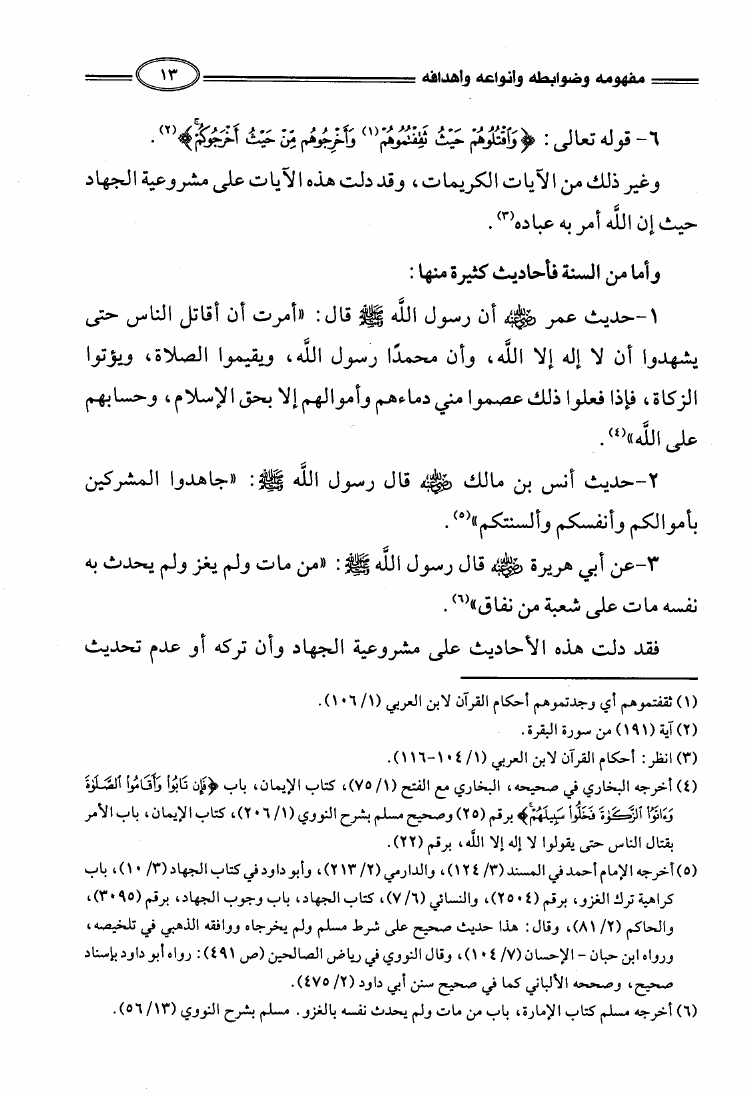 مفهومه وضوابطه وأنواعه وأهدافه ١٣
٦- قوله تعالى : ﴿وَاقْتُلُوهُمْ حَيْثُ ثَقِفْتُمُوهُمْ(١) وَأَخْرِجُوهُم مِّنْ حَيْثُ أَخْرَجُوكُمْ﴾(٢) .
وغير ذلك من الآيات الكريمات ، وقد دلت هذه الآيات على مشروعية الجهاد
حيث إن اللَّه أمر به عباده(٣) .
وأما من السنة فأحاديث كثيرة منها :
١-حديث عمر رضي الله عنه أن رسول اللَّه ﷺ قال : «أمرت أن أقاتل الناس حتى
يشهدوا أن لا إله إلا اللَّه، وأن محمدًا رسول اللَّه، ويقيموا الصلاة، ويؤتوا
الزكاة ، فإذا فعلوا ذلك عصموا مني دماءهم وأموالهم إلا بحق الإسلام ، وحسابهم
على اللَّه»(٤) .
٢-حديث أنس بن مالك رضي الله عنه قال رسول اللَّه ﷺ : «جاهدوا المشركين
بأموالكم وأنفسكم وألسنتكم»(٥) .
٣-عن أبي هريرة رضي الله عنه قال رسول اللَّه ﷺ : «من مات ولم يغز ولم يحدث به
نفسه مات على شعبة من نفاق»(٦) .
فقد دلت هذه الأحاديث على مشروعية الجهاد وأن تركه أو عدم تحديث
(١) ثقفتموهم أي وجدتموهم أحكام القرآن لابن العربي (١/ ١٠٦).
(٢) آية (١٩١) من سورة البقرة.
(٣) انظر : أحكام القرآن لابن العربي (١/ ١٠٤-١١٦).
(٤) أخرجه البخاري في صحيحه، البخاري مع الفتح (١/ ٧٥)، كتاب الإيمان، باب ﴿فَإِن تَابُوا وَأَقَامُوا الصَّلَوٰةَ
وَءَاتَوُا الزَّكَوٰةَ فَخَلُّوا سَبِيلَهُمْ﴾ برقم (٢٥) وصحيح مسلم بشرح النووي (١/ ٢٠٦)، كتاب الإيمان، باب الأمر
بقتال الناس حتى يقولوا لا إله إلا اللَّه، برقم (٢٢).
(٥) أخرجه الإمام أحمد في المسند (٣/ ١٢٤)، والدارمي (٢/ ٢١٣)، وأبو داود في كتاب الجهاد (٣/ ١٠)، باب
كراهية ترك الغزو، برقم (٢٥٠٤)، والنسائي (٦/ ٧)، كتاب الجهاد، باب وجوب الجهاد، برقم (٣٠٩٥)،
والحاكم (٢/ ٨١)، وقال : هذا حديث صحيح على شرط مسلم ولم يخرجاه ووافقه الذهبي في تلخيصه،
ورواه ابن حبان - الإحسان (٧/ ١٠٤)، وقال النووي في رياض الصالحين (ص ٤٩١): رواه أبو داود بإسناد
صحيح، وصححه الألباني كما في صحيح سنن أبي داود (٢/ ٤٧٥).
(٦) أخرجه مسلم كتاب الإمارة، باب من مات ولم يحدث نفسه بالغزو. مسلم بشرح النووي (١٣/ ٥٦).